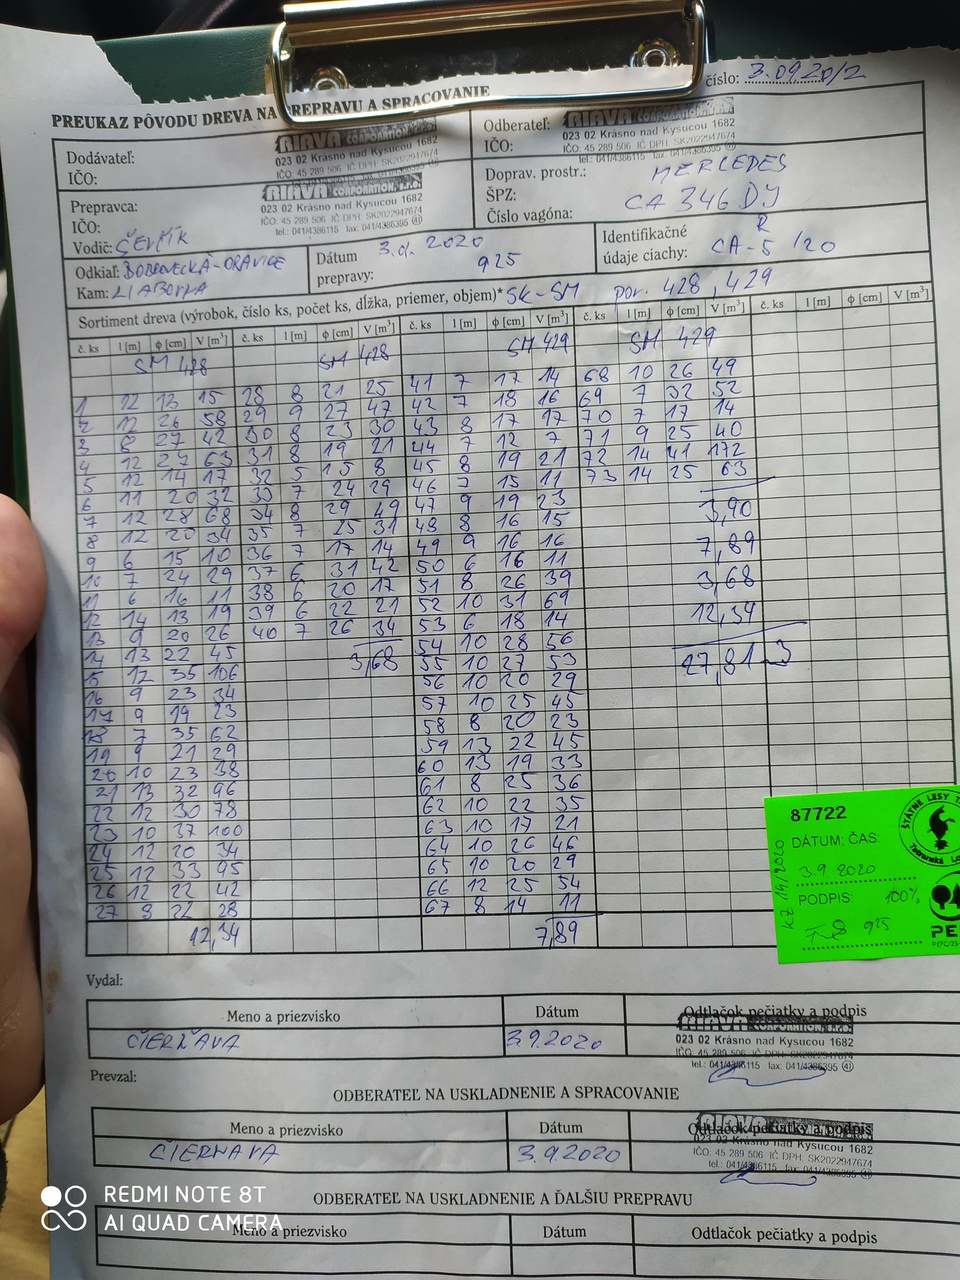 číslo: 3.0920/2
PREUKAZ PÔVODU DREVA NA PREPRAVU A SPRACOVANIE
Dodávateľ:
IČO:
RIAVA CORPORATION, s.r.o.
023 02 Krásno nad Kysucou 1682
IČO: 45 289 506 IČ DPH: SK2022947674
Odberateľ:
IČO:
RIAVA CORPORATION
023 02 Krásno nad Kysucou 1682
IČO: 45 289 506 IČ DPH: SK2022947674
tel.: 041/4386115 fax: 041/4386395 41
Prepravca:
IČO:
Vodič:
RIAVA CORPORATION, s.r.o.
023 02 Krásno nad Kysucou 1682
IČO: 45 289 506 IČ DPH: SK2022947674
tel.: 041/4386115 fax: 041/4386395 41
Doprav. prostr.: MERCEDES
ŠPZ: CA 346 DJ
Číslo vagóna:
Odkiaľ: BOBROVECKÁ-ORAVICE
Kam:
Dátum
prepravy:
3.9. 2020
925
Identifikačné
údaje ciachy:
R
CA-5 /20
Sortiment dreva (výrobok, číslo ks, počet ks, dĺžka, priemer, objem)* SK-SM por. 428, 429
č. ks l [m] ϕ [cm] V [m³] č. ks l [m] ϕ [cm] V [m³] č. ks l [m] ϕ [cm] V [m³] č. ks l [m] ϕ [cm] V [m³] č. ks l [m] ϕ [cm] V [m³]
SM 428 SM 428 SM 429 SM 429
1 12 13 15 28 8 21 25 41 7 17 14 68 10 26 49
2 12 26 58 29 9 27 47 42 7 18 16 69 7 32 52
3 8 27 42 30 8 23 30 43 8 17 17 70 7 17 14
4 12 27 63 31 8 19 21 44 7 12 7 71 9 25 40
5 12 14 17 32 5 15 8 45 8 19 21 72 14 41 172
6 11 20 32 33 7 24 29 46 7 15 11 73 14 25 63
7 12 28 68 34 8 29 49 47 9 19 23
8 12 20 34 35 7 25 31 48 8 16 15 3,90
9 6 15 10 36 7 17 14 49 9 16 16
10 7 24 29 37 6 31 42 50 6 16 11 7,89
11 6 16 11 38 6 20 17 51 8 26 39 3,68
12 14 13 19 39 6 22 21 52 10 31 69
13 9 20 26 40 7 26 34 53 6 18 14 12,34
14 13 22 45 3,68 54 10 28 56
15 12 35 106 55 10 27 53 27,81
16 9 23 34 56 10 20 29
17 9 19 23 57 10 25 45
18 7 35 62 58 8 20 23
19 9 21 29 59 13 22 45
20 10 23 38 60 13 19 33
21 13 32 96 61 8 25 36
22 12 30 78 62 10 22 35
23 10 37 100 63 10 17 21
24 12 20 34 64 10 26 46
25 12 33 95 65 10 20 29
26 12 22 42 66 12 25 54
27 8 22 28 67 8 14 11
12,34 7,89
87722
DÁTUM: ČAS:
3.9.2020
PODPIS: 100%
925
KZ 14/2020
ŠTÁTNE LESY
Vydal:
Meno a priezvisko Dátum Odtlačok pečiatky a podpis
ČIERŇAVA 3.9.2020
RIAVA CORPORATION, s.r.o.
023 02 Krásno nad Kysucou 1682
IČO: 45 289 506 IČ DPH: SK2022947674
tel.: 041/4386115 fax: 041/4386395 41
Prevzal:
ODBERATEĽ NA USKLADNENIE A SPRACOVANIE
Meno a priezvisko Dátum Odtlačok pečiatky a podpis
ČIERNAVA 3.9.2020
023 02 Krásno nad Kysucou 1682
IČO: 45 289 506 IČ DPH: SK2022947674
tel.: 041/4386115 fax: 041/4386395 41
ODBERATEĽ NA USKLADNENIE A ĎALŠIU PREPRAVU
Meno a priezvisko Dátum Odtlačok pečiatky a podpis
REDMI NOTE 8T
AI QUAD CAMERA